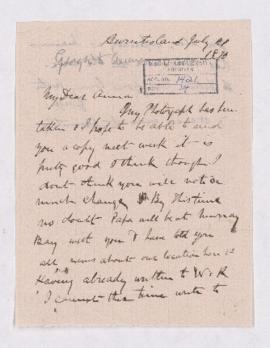 Burntisland. July 28
1870
My Dear Anna
My Photograph has been
taken & I hope to be able to send
you a copy next week it is
pretty good I think though I
dont think you will notice
much change. By this time
no doubt Papa will be at Murray
Bay with you & have told you
all news about our location here
Having already written to
I cannot this time write to